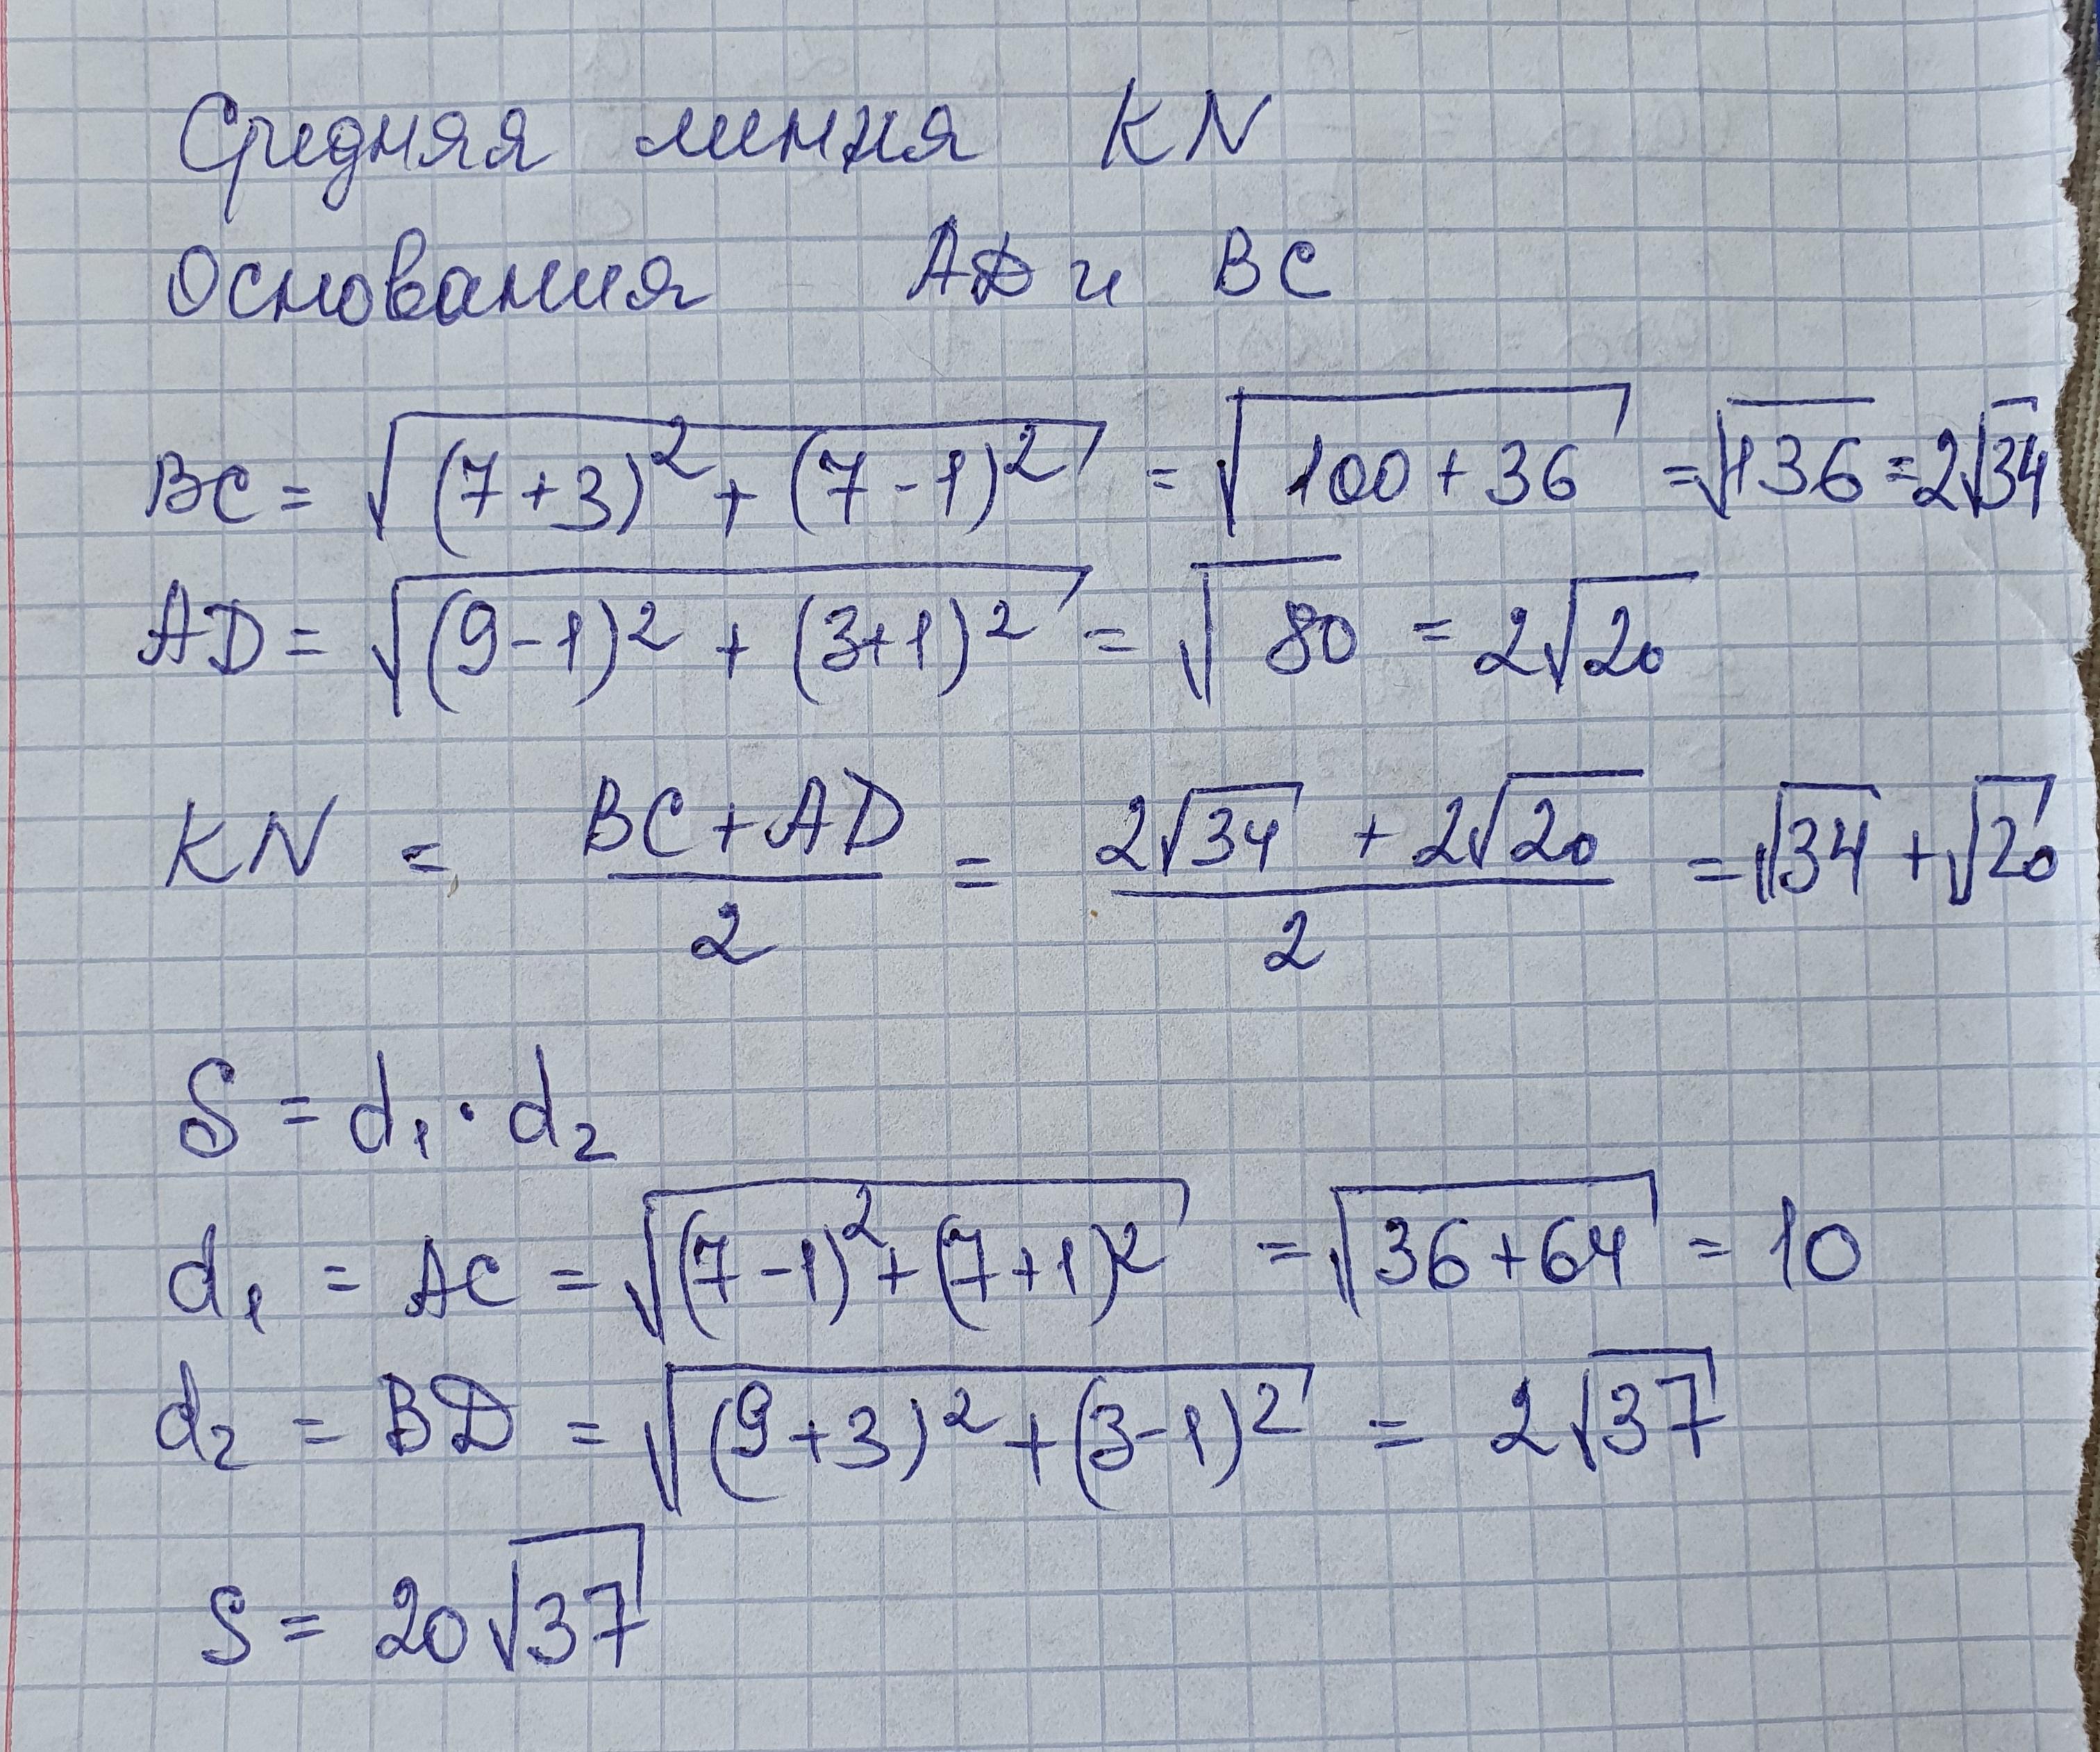 Средняя линия KN
Основания AD и BC
BC = √((7+3)² + (7-1)²) = √(100+36) = √136 = 2√34
AD = √((9-1)² + (3+1)²) = √80 = 2√20
KN = (BC+AD)/2 = (2√34 + 2√20)/2 = √34 + √20
S = d₁ · d₂
d₁ = AC = √((7-1)² + (7+1)²) = √(36+64) = 10
d₂ = BD = √((9+3)² + (3-1)²) = 2√37
S = 20√37